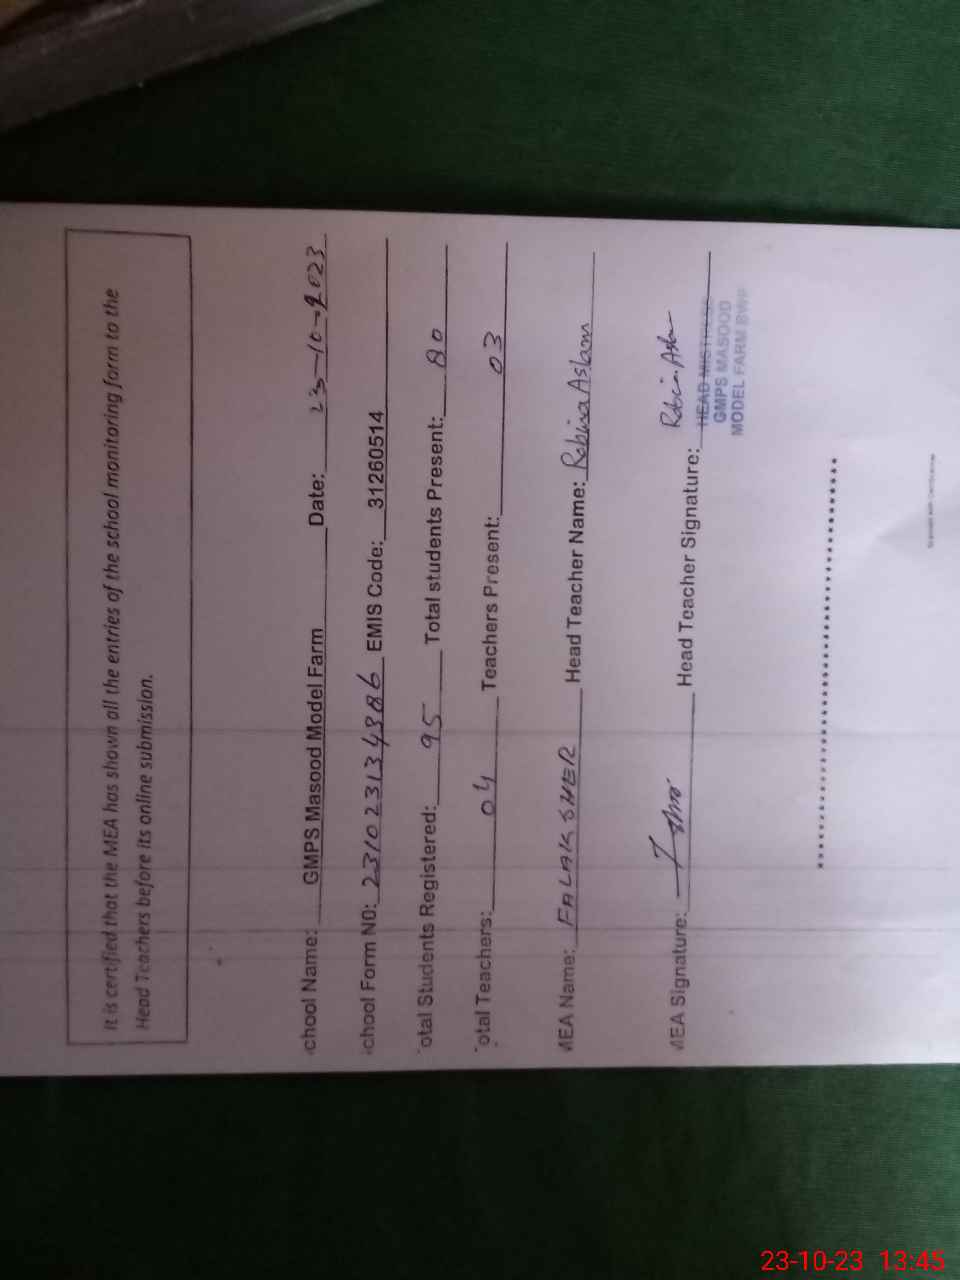 It is certified that the MEA has shown all the entries of the school monitoring form to the
Head Teachers before its online submission.
chool Name: GMPS Masood Model Farm Date: 23-10-2023
chool Form N0: 231023134386 EMIS Code: 31260514
otal Students Registered: 95 Total students Present: 80
otal Teachers: 04 Teachers Present: 03
MEA Name: FALAK SHER Head Teacher Name: Robina Aslam
MEA Signature: Head Teacher Signature: Robina Aslam
HEAD MISTRESS
GMPS MASOOD
MODEL FARM BWP
23-10-23 13:45